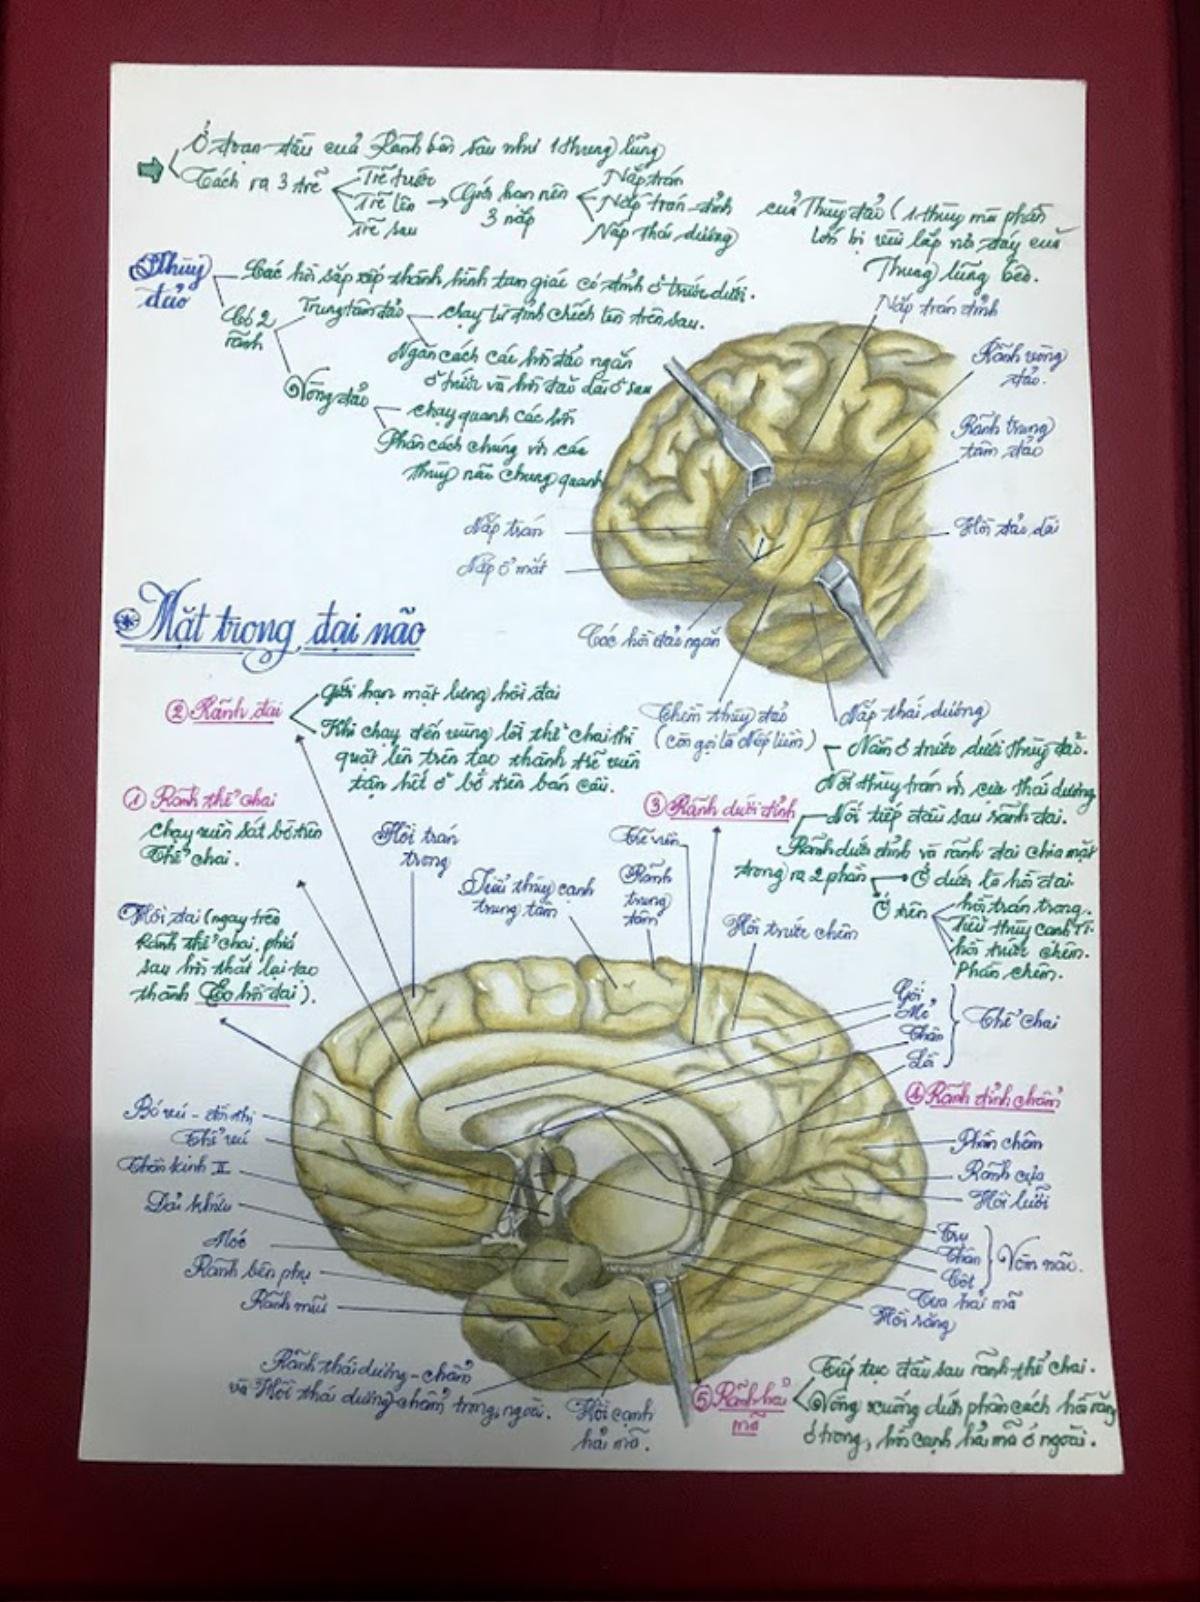 Ở đoạn đầu của Rãnh bên sâu như 1 thung lũng
Tách ra 3 trẽ
Trẽ trước
Trẽ lên
Trẽ sau
Giới hạn nên
3 nắp
Nắp trán
Nắp trán đỉnh
Nắp thái dương
của Thùy đảo (1 thùy mà phần
lớn bị vùi lấp nơ đáy của
Thung lũng bên.
Thùy
đảo
Các hồi sắp xếp thành hình tam giác có đỉnh ở trước dưới.
Có 2
rãnh
Trung tâm đảo
chạy từ đỉnh chếch lên trên sau.
Ngăn cách các hồi đảo ngắn
ở trước và hồi đảo dài ở sau
Vòng đảo
chạy quanh các hồi
Phân cách chúng với các
thùy não chung quanh
Nắp trán đỉnh
Rãnh vòng
đảo.
Rãnh trung
tâm đảo
Hồi đảo dài
Nắp trán
Nắp ổ mắt
Các hồi đảo ngắn
Thềm thùy đảo
(còn gọi là Nếp liềm)
Nắp thái dương
Nằm ở trước dưới thùy đảo.
Nối thùy trán với cực thái dương
Mặt trong đại não
② Rãnh đai
Giới hạn mặt lưng hồi đai
Khi chạy đến vùng lồi thể chai thì
quặt lên trên tạo thành trẽ viền
tận hết ở bờ trên bán cầu.
① Rãnh thể chai
chạy viền sát bờ trên
Thể chai.
③ Rãnh dưới đỉnh
Nối tiếp đầu sau rãnh đai.
Rãnh dưới đỉnh và rãnh đai chia mặt
trong ra 2 phần
Ở dưới là hồi đai
Ở trên
hồi trán trong.
Tiểu thùy cạnh TT.
hồi trước chêm.
Phần chêm.
Hồi trán
trong
Tiểu thùy cạnh
trung tâm
Trẽ viền
Rãnh
trung
tâm
Hồi trước chêm
Hồi đai (ngay trên
Rãnh thể chai, phía
sau hồi thắt lại tạo
thành Eo hồi đai).
Gối
Mỏ
Thân
Lồi
Thể chai
④ Rãnh đỉnh chẩm
Phần chêm
Rãnh cựa
Hồi lưỡi
Trụ
Thân
Cột
Vòm não.
Tua hải mã
Hồi răng
Bó vú - đồi thị
Thể vú
Thần kinh II
Dải khứu
Móc
Rãnh bên phụ
Rãnh mũi
Rãnh thái dương - chẩm
và Hồi thái dương chẩm trong, ngoài.
Hồi cạnh
hải mã.
⑤ Rãnh hải
mã
Tiếp tục đầu sau rãnh thể chai.
Vòng xuống dưới phân cách hồi răng
ở trong, hồi cạnh hải mã ở ngoài.